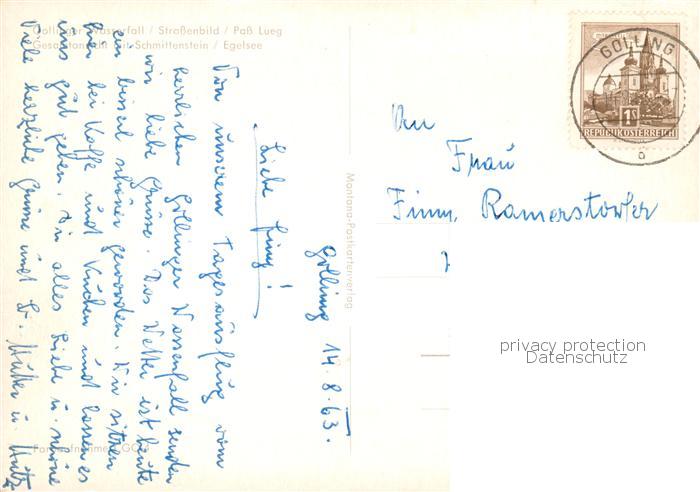 Gollinger Wasserfall / Straßenbild / Paß Lueg
Gesamtansicht mit Schmittenstein / Egelsee
Golling 14.8.63.
Liebe Finny!
Von unserem Tagesausflug vom
herrlichen Gollinger Wasserfall senden
wir liebe Grüsse. Das Wetter ist heute
ein bisserl schöner geworden. Wir sitzen
hier bei Kaffe und Kuchen und lassen es
uns gut gehen. Dir alles Liebe u. schöne
Viele herzliche Grüsse und B. Mutter u.
Montana-Postkartenverlag
GOLLING
1S
REPUBLIK ÖSTERREICH
An
Frau
Finny Ramerstorfer
privacy protection
Datenschutz